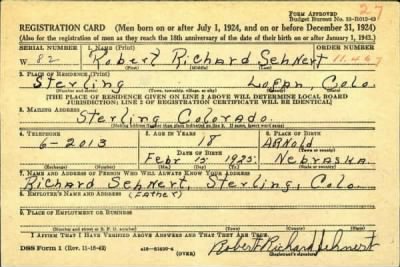 27
FORM APPROVED
REGISTRATION CARD (Men born on or after July 1, 1924, and on or before December 31, 1924)
(Also for the registration of men as they reach the 18th anniversary of the date of their birth on or after January 1, 1943.)
SERIAL NUMBER 1. NAME (Print) ORDER NUMBER
W 82 Robert Richard Sehnert 11,467
(First) (Middle) (Last)
2. PLACE OF RESIDENCE (Print)
Sterling Logan Colo.
(Number and street) (Town, township, village, or city) (County) (State)
[THE PLACE OF RESIDENCE GIVEN ON LINE 2 ABOVE WILL DETERMINE LOCAL BOARD
JURISDICTION; LINE 2 OF REGISTRATION CERTIFICATE WILL BE IDENTICAL]
3. MAILING ADDRESS
Sterling Colorado.
4. TELEPHONE 5. AGE IN YEARS 6. PLACE OF BIRTH
6-2013 18 Arnold
DATE OF BIRTH (Town or county)
Febr 15 1925. Nebraska
(Exchange) (Number) (Mo.) (Day) (Yr.) (State or country)
7. NAME AND ADDRESS OF PERSON WHO WILL ALWAYS KNOW YOUR ADDRESS
Richard Sehnert, Sterling, Colo.
8. EMPLOYER'S NAME AND ADDRESS (Father)
9. PLACE OF EMPLOYMENT OR BUSINESS
(Number and street or R. F. D. number) (Town) (County) (State)
I AFFIRM THAT I HAVE VERIFIED ABOVE ANSWERS AND THAT THEY ARE TRUE.
DSS Form 1 (Rev. 11-16-42) (OVER) Robert Richard Sehnert
(Registrant's signature)